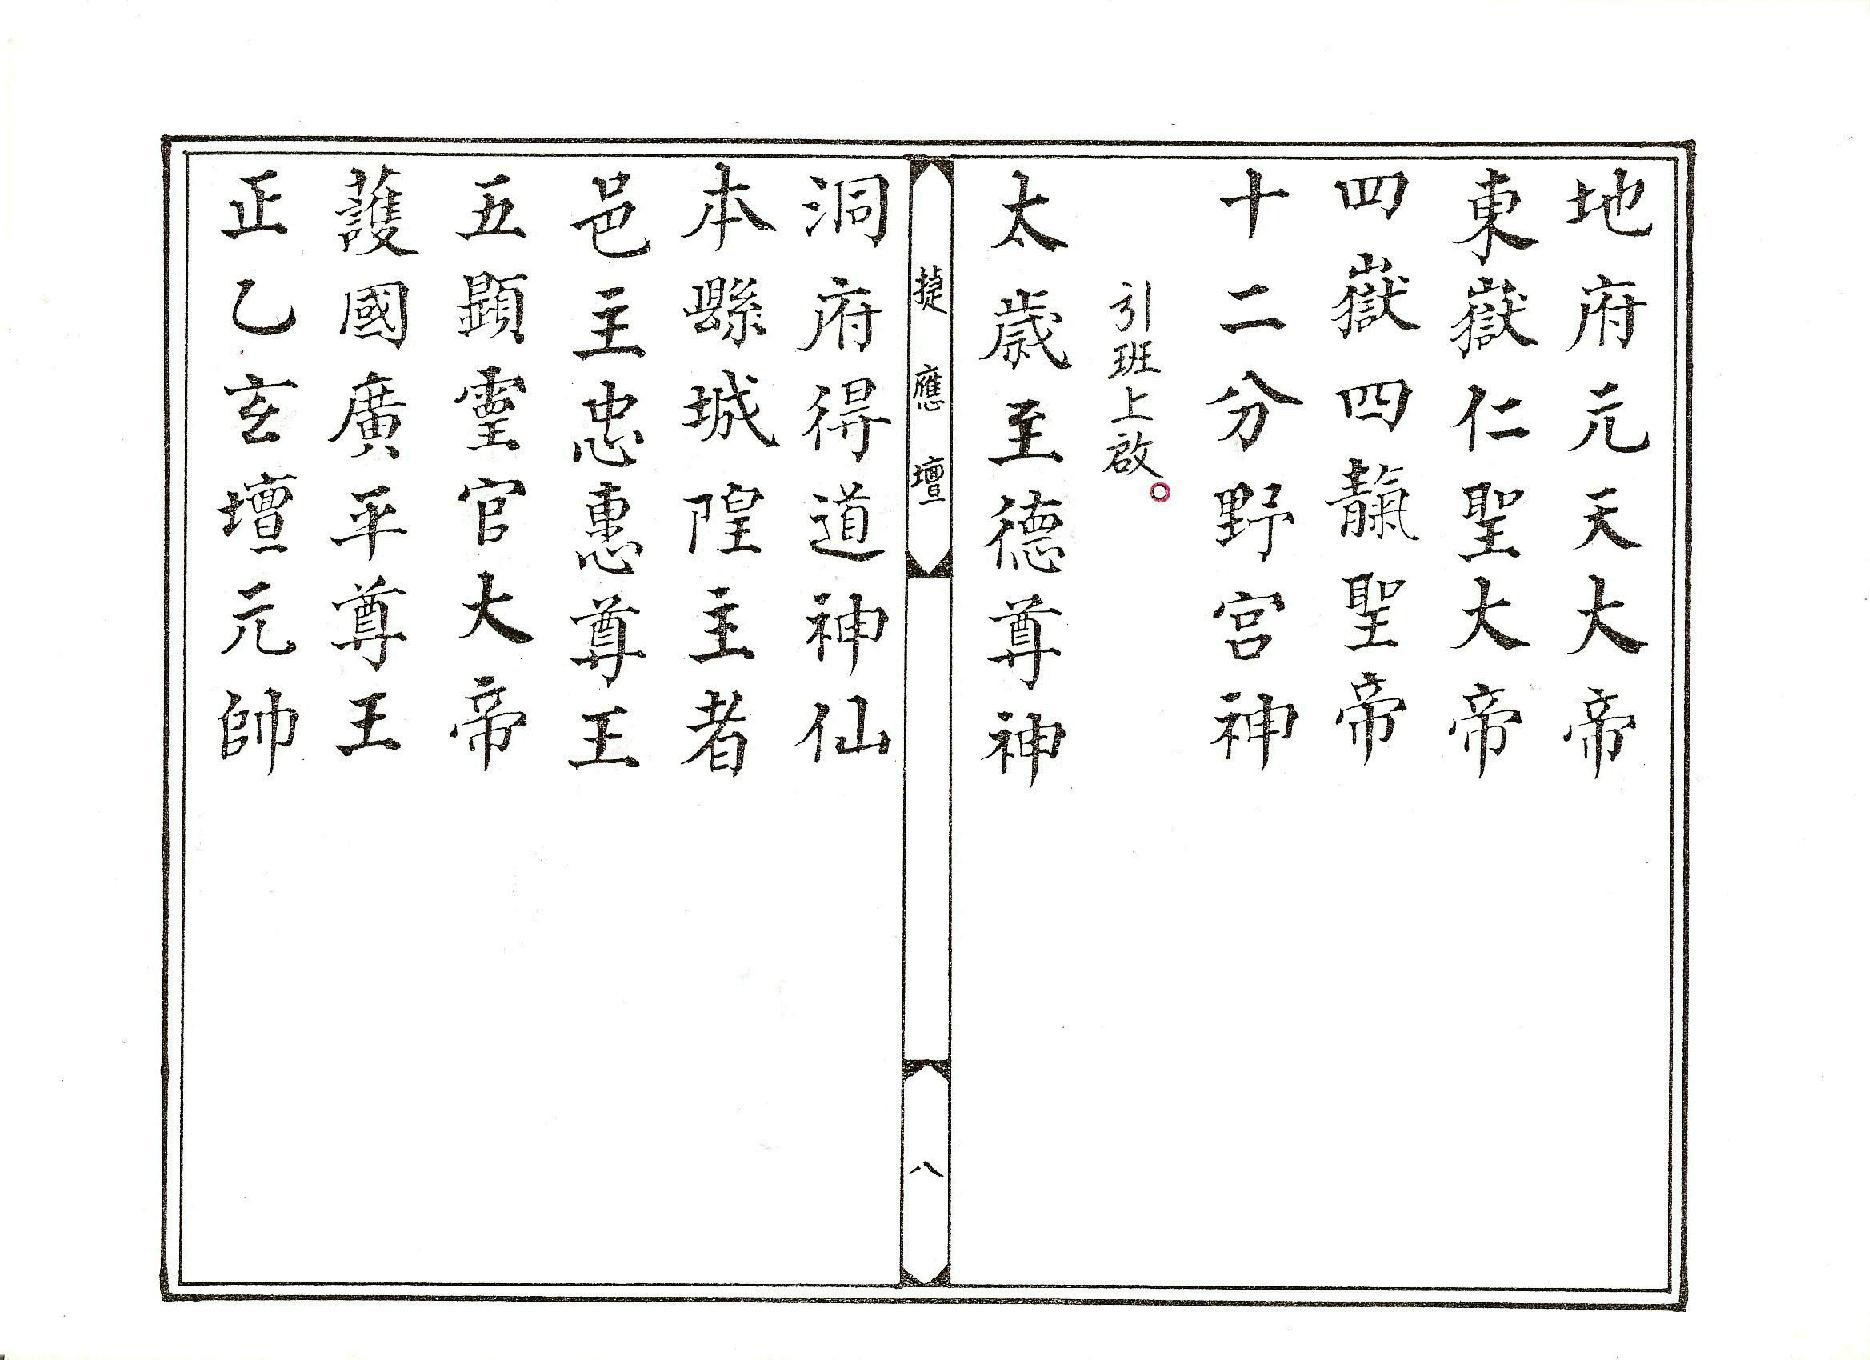 地府元天大帝
東嶽仁聖大帝
四嶽四靝聖帝
十二分野宮神
引班上啟
太歲至德尊神
捷應壇
八
洞府得道神仙
本縣城隍主者
邑主忠惠尊王
五顕靈官大帝
護國廣平尊王
正乙玄壇元帥